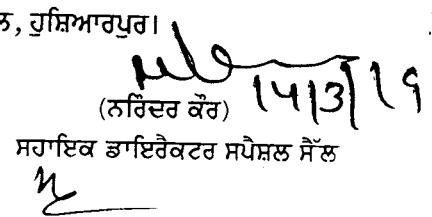 ਲ, ਹੁਸ਼ਿਆਰਪੁਰ।
14/3/19
(ਨਰਿੰਦਰ ਕੌਰ)
ਸਹਾਇਕ ਡਾਇਰੈਕਟਰ ਸਪੈਸ਼ਲ ਸੈੱਲ